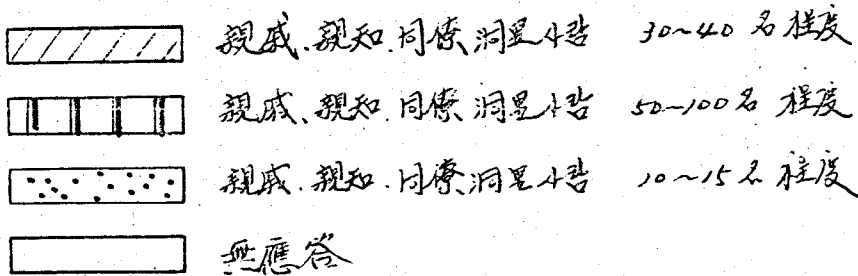 親戚、親知、同僚、洞里사람 30~40 名 程度
親戚、親知、同僚、洞里사람 50~100名 程度
親戚、親知、同僚、洞里사람 10~15名 程度
無應答